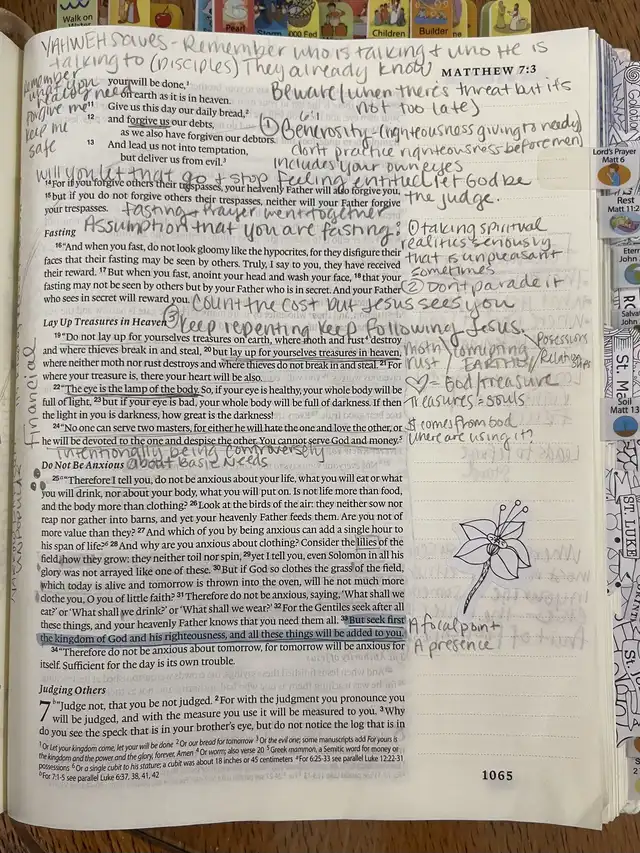 Walk on
Pearl
Storm
Children
Builder
YAHWEH saves - Remember who is talking & who He is
talking to (DISCIPLES) They already know
MATTHEW 7:3
Remember
your will be done,¹
on earth as it is in heaven.
Beware (when there's threat but its
not too late)
forgive me
11 Give us this day our daily bread,²
keep me
12 and forgive us our debts,
as we also have forgiven our debtors.
6:1
① Generosity - (righteousness giving to needy)
safe
13 And lead us not into temptation,
but deliver us from evil.³
don't practice righteousness before men
includes your own eyes
Lord's Prayer
Matt 6
will you let that go & stop feeling entitled, let God be
the judge.
¹⁴For if you forgive others their trespasses, your heavenly Father will also forgive you,
¹⁵but if you do not forgive others their trespasses, neither will your Father forgive
your trespasses.
fasting & prayer went together
Assumption that you are fasting:
Rest
Matt 11:2
Fasting
① taking spiritual
realities seriously
that is unpleasant
sometimes
② Don't parade it
¹⁶"And when you fast, do not look gloomy like the hypocrites, for they disfigure their
faces that their fasting may be seen by others. Truly, I say to you, they have received
their reward. ¹⁷But when you fast, anoint your head and wash your face, ¹⁸that your
fasting may not be seen by others but by your Father who is in secret. And your Father
who sees in secret will reward you.
count the cost but Jesus sees you
Lay Up Treasures in Heaven
③ Keep repenting keep following Jesus.
financial
¹⁹"Do not lay up for yourselves treasures on earth, where moth and rust⁴ destroy
and where thieves break in and steal, ²⁰but lay up for yourselves treasures in heaven,
where neither moth nor rust destroys and where thieves do not break in and steal. ²¹For
where your treasure is, there your heart will be also.
moth
rust
corrupting
EARTH
♡ = God/treasure
treasures = souls
²²"The eye is the lamp of the body. So, if your eye is healthy, your whole body will be
full of light, ²³but if your eye is bad, your whole body will be full of darkness. If then
the light in you is darkness, how great is the darkness!
Soil
Matt 13
²⁴"No one can serve two masters, for either he will hate the one and love the other, or
he will be devoted to the one and despise the other. You cannot serve God and money.⁵
$ comes from God
where are using it?
intentionally being controversely
Do Not Be Anxious
about Basic Needs
²⁵"Therefore I tell you, do not be anxious about your life, what you will eat or what
you will drink, nor about your body, what you will put on. Is not life more than food,
and the body more than clothing? ²⁶Look at the birds of the air: they neither sow nor
reap nor gather into barns, and yet your heavenly Father feeds them. Are you not of
more value than they? ²⁷And which of you by being anxious can add a single hour to
his span of life?⁶ ²⁸And why are you anxious about clothing? Consider the lilies of the
field, how they grow: they neither toil nor spin, ²⁹yet I tell you, even Solomon in all his
glory was not arrayed like one of these. ³⁰But if God so clothes the grass of the field,
which today is alive and tomorrow is thrown into the oven, will he not much more
clothe you, O you of little faith? ³¹Therefore do not be anxious, saying, 'What shall we
eat?' or 'What shall we drink?' or 'What shall we wear?' ³²For the Gentiles seek after all
these things, and your heavenly Father knows that you need them all. ³³But seek first
the kingdom of God and his righteousness, and all these things will be added to you.
A focal point
A presence
³⁴"Therefore do not be anxious about tomorrow, for tomorrow will be anxious for
itself. Sufficient for the day is its own trouble.
ST. LUKE
Judging Others
7 "Judge not, that you be not judged. ²For with the judgment you pronounce you
will be judged, and with the measure you use it will be measured to you. ³Why
do you see the speck that is in your brother's eye, but do not notice the log that is in
¹ Or Let your kingdom come, let your will be done ² Or our bread for tomorrow ³ Or the evil one; some manuscripts add For yours is
the kingdom and the power and the glory, forever. Amen ⁴ Or worm; also verse 20 ⁵ Greek mammon, a Semitic word for money or
possessions ⁶ Or a single cubit to his stature; a cubit was about 18 inches or 45 centimeters ᵃ For 6:25-33 see parallel Luke 12:22-31
ᵇ For 7:1-5 see parallel Luke 6:37, 38, 41, 42
1065